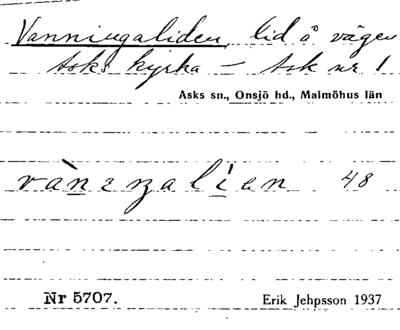 Vanningaliden, lid å vägen
Asks kyrka – Ask nr 1
Asks sn., Onsjö hd., Malmöhus län
48
Nr 5707. Erik Jehpsson 1937